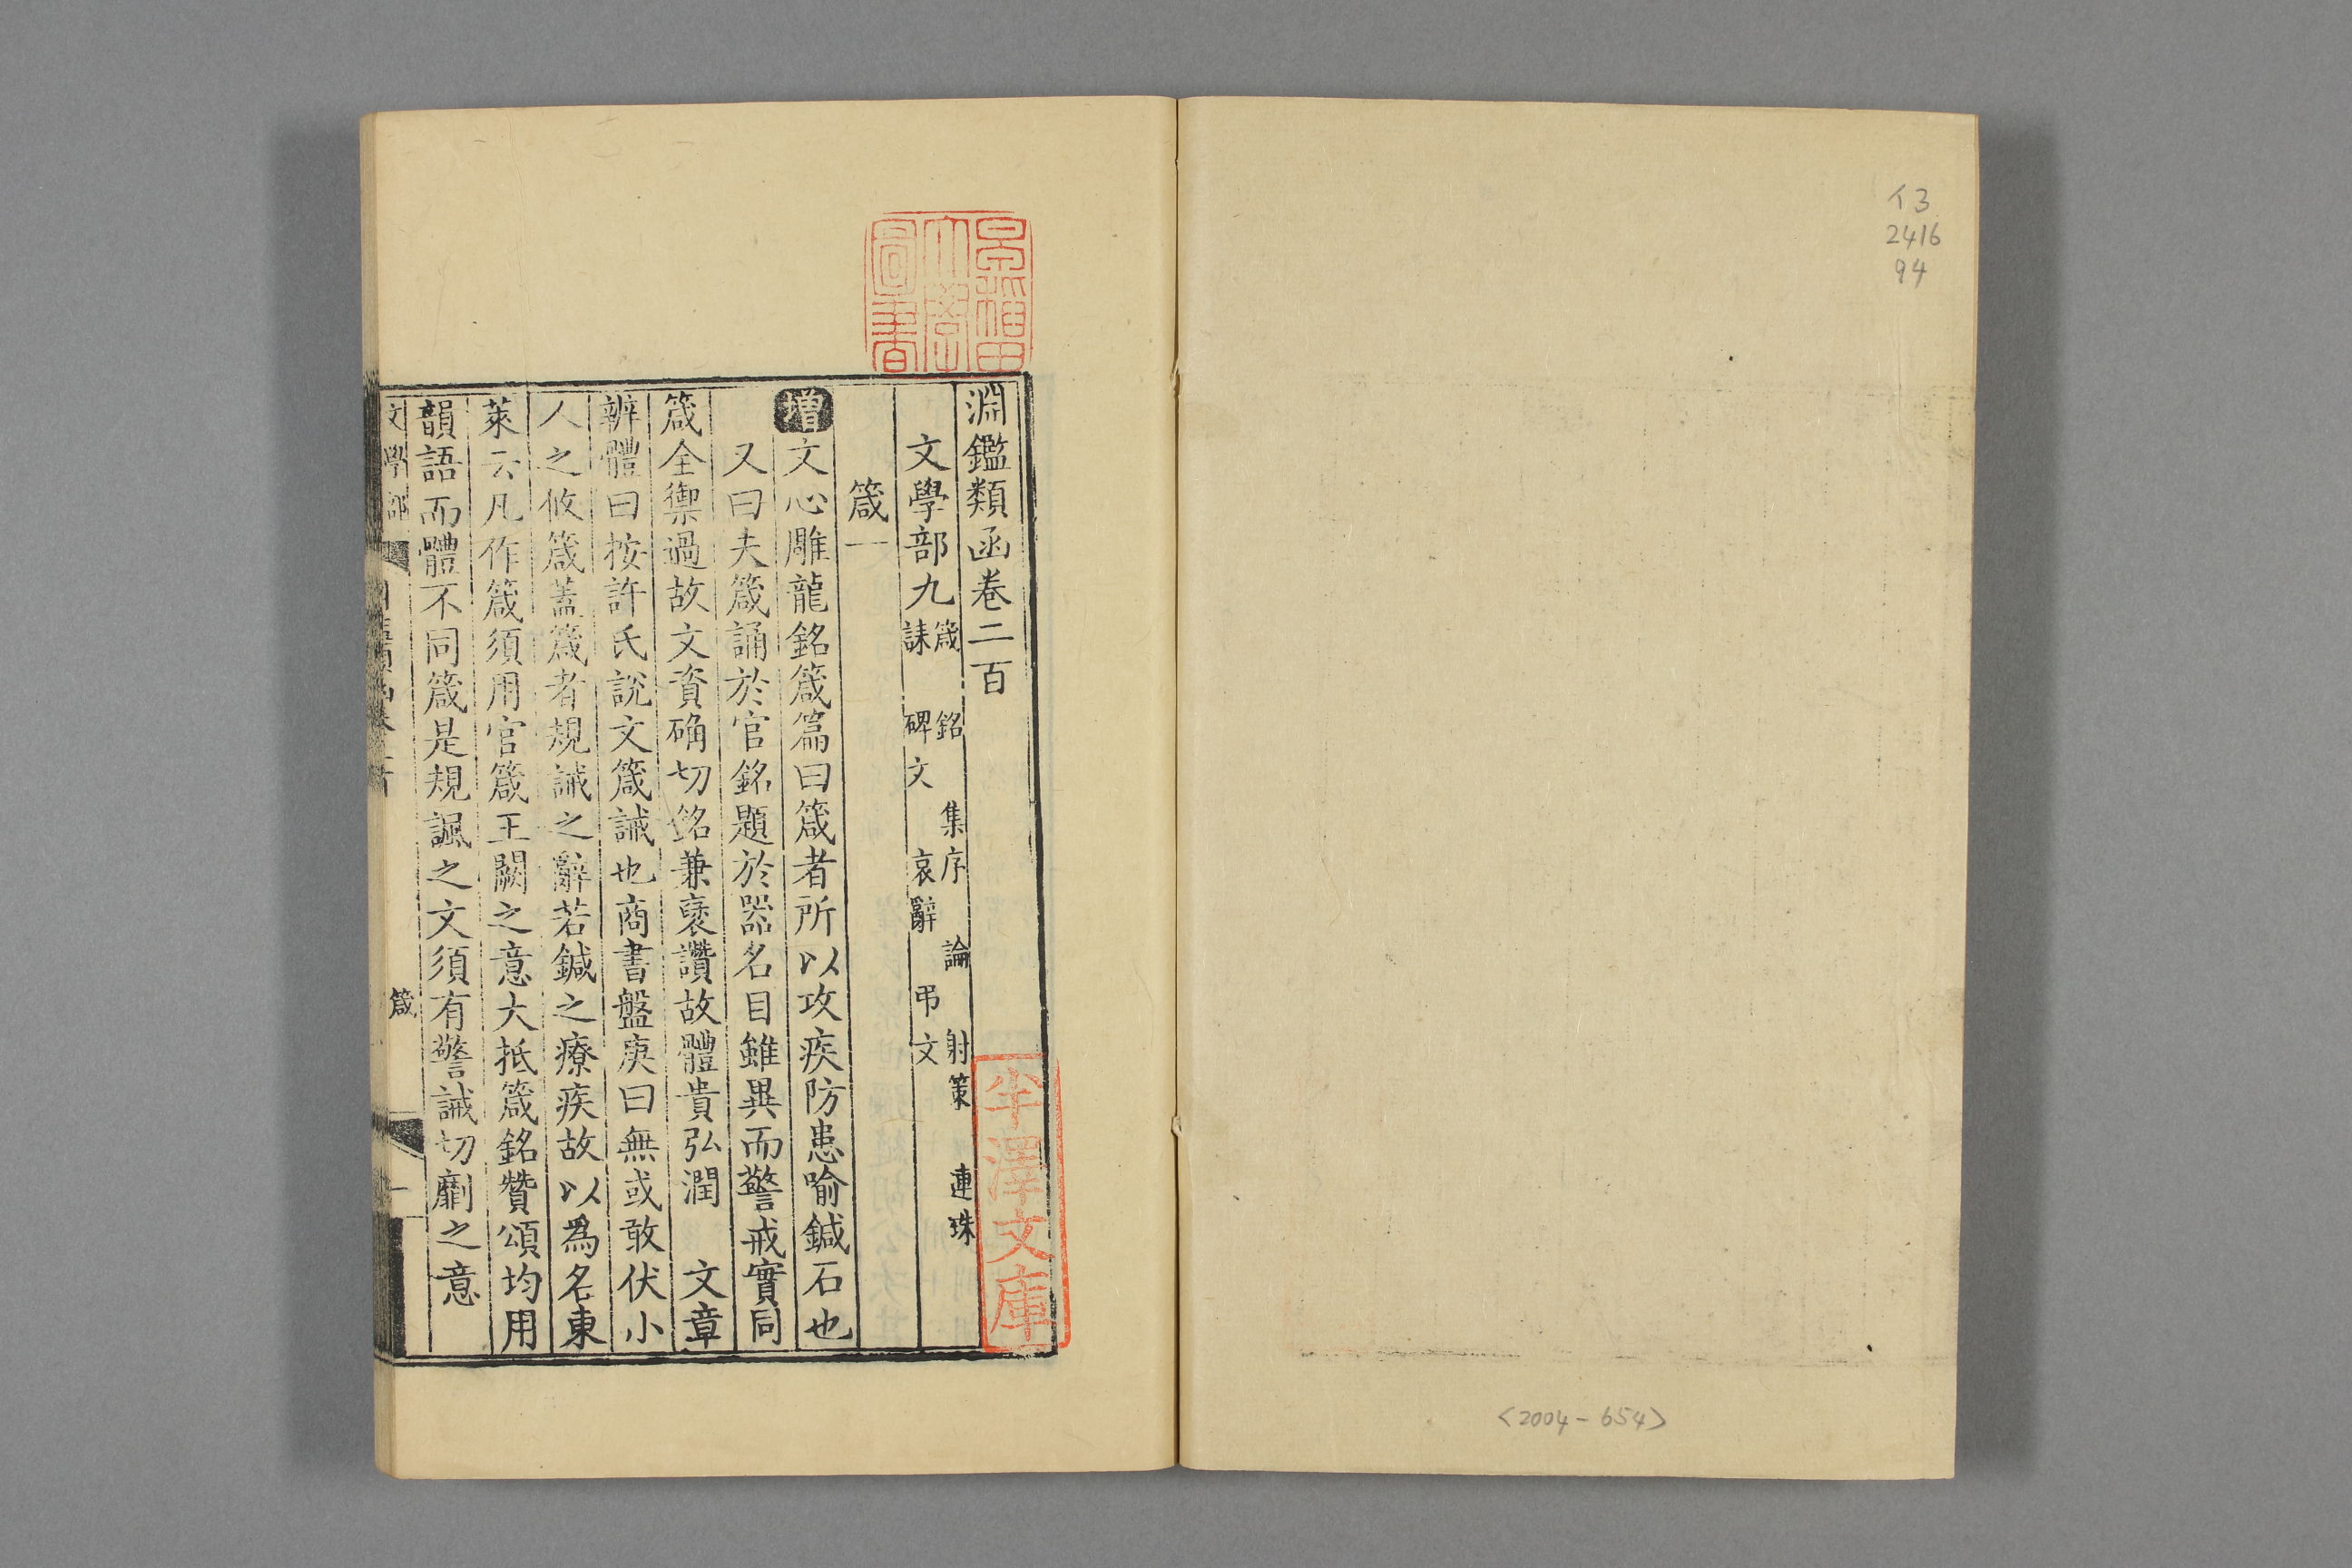 イ3
2416
94
<2004-654>
早稲田
大學
圖書
淵鑑類函卷二百
文學部九箴 銘 集序 論 射策 連珠
誄 碑文 哀辭 弔文
箴一
增文心雕龍銘箴篇曰箴者所以攻疾防患喻鍼石也
又曰夫箴誦於官銘題於器名目雖異而警戒實同
箴全禦過故文資确切銘兼褒讚故體貴弘潤 文章
辨體曰按許氏說文箴誡也商書盤庚曰無或敢伏小
人之攸箴蓋箴者規誡之辭若鍼之療疾故以爲名東
萊云凡作箴須用官箴王闕之意大抵箴銘贊頌均用
韻語而體不同箴是規諷之文須有警誡切劘之意
文學部 箴 一
澤文庫